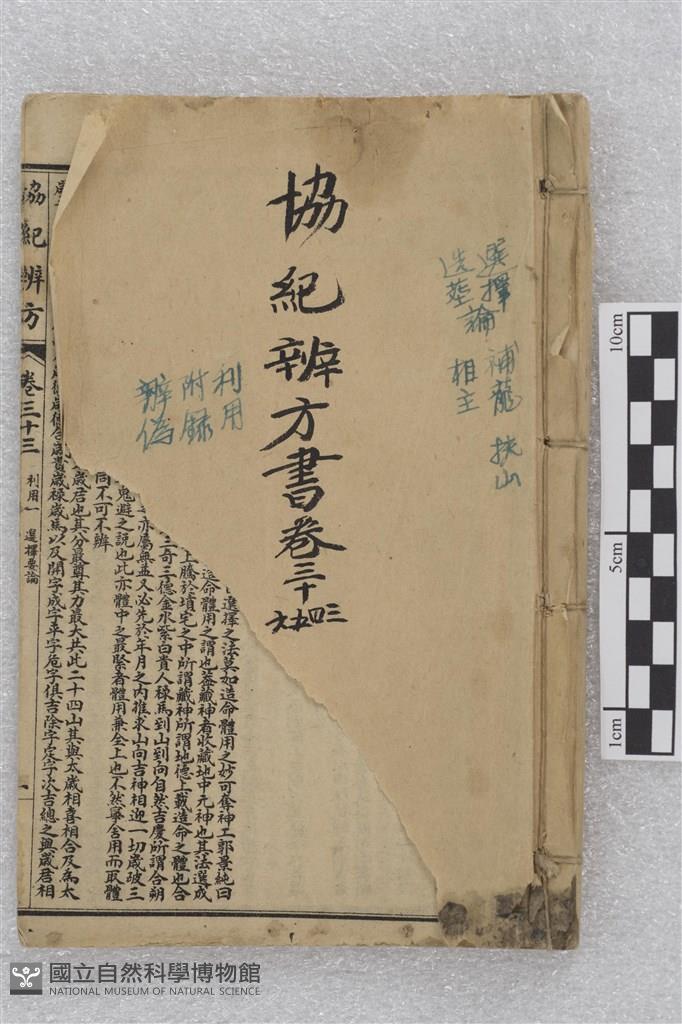 協紀辨方書卷三十
三四五六
選擇論 補龍 扶山
造塟 相主
利用
附録
辦偽
選擇之法莫如造命體用之妙可奪神工郭景純曰
造命體用之謂也葢藏神者收藏地中元神也其法選成
上騰於墳宅之中所謂藏神所謂地德上載造命之體也合
三奇三德金水紫白貴人禄馬到山到向自然吉慶所謂合朔
亦屬無益又必先於年月之内推求山向吉神相迎一切歲破三
鬼避之説也此亦體中之最緊者體用兼全上也不然寧舍用而取體
同不可不辨
歲君也其分最尊其力最大共此二十四山其與太歲相喜相合及為太
歲貴歲禄歲馬以及開字成字平字危字俱吉除字定字次吉總之與歲君相
協紀辨方
卷三十三
利用一 選擇要論
一
10cm
5cm
1cm
國立自然科學博物館
NATIONAL MUSEUM OF NATURAL SCIENCE